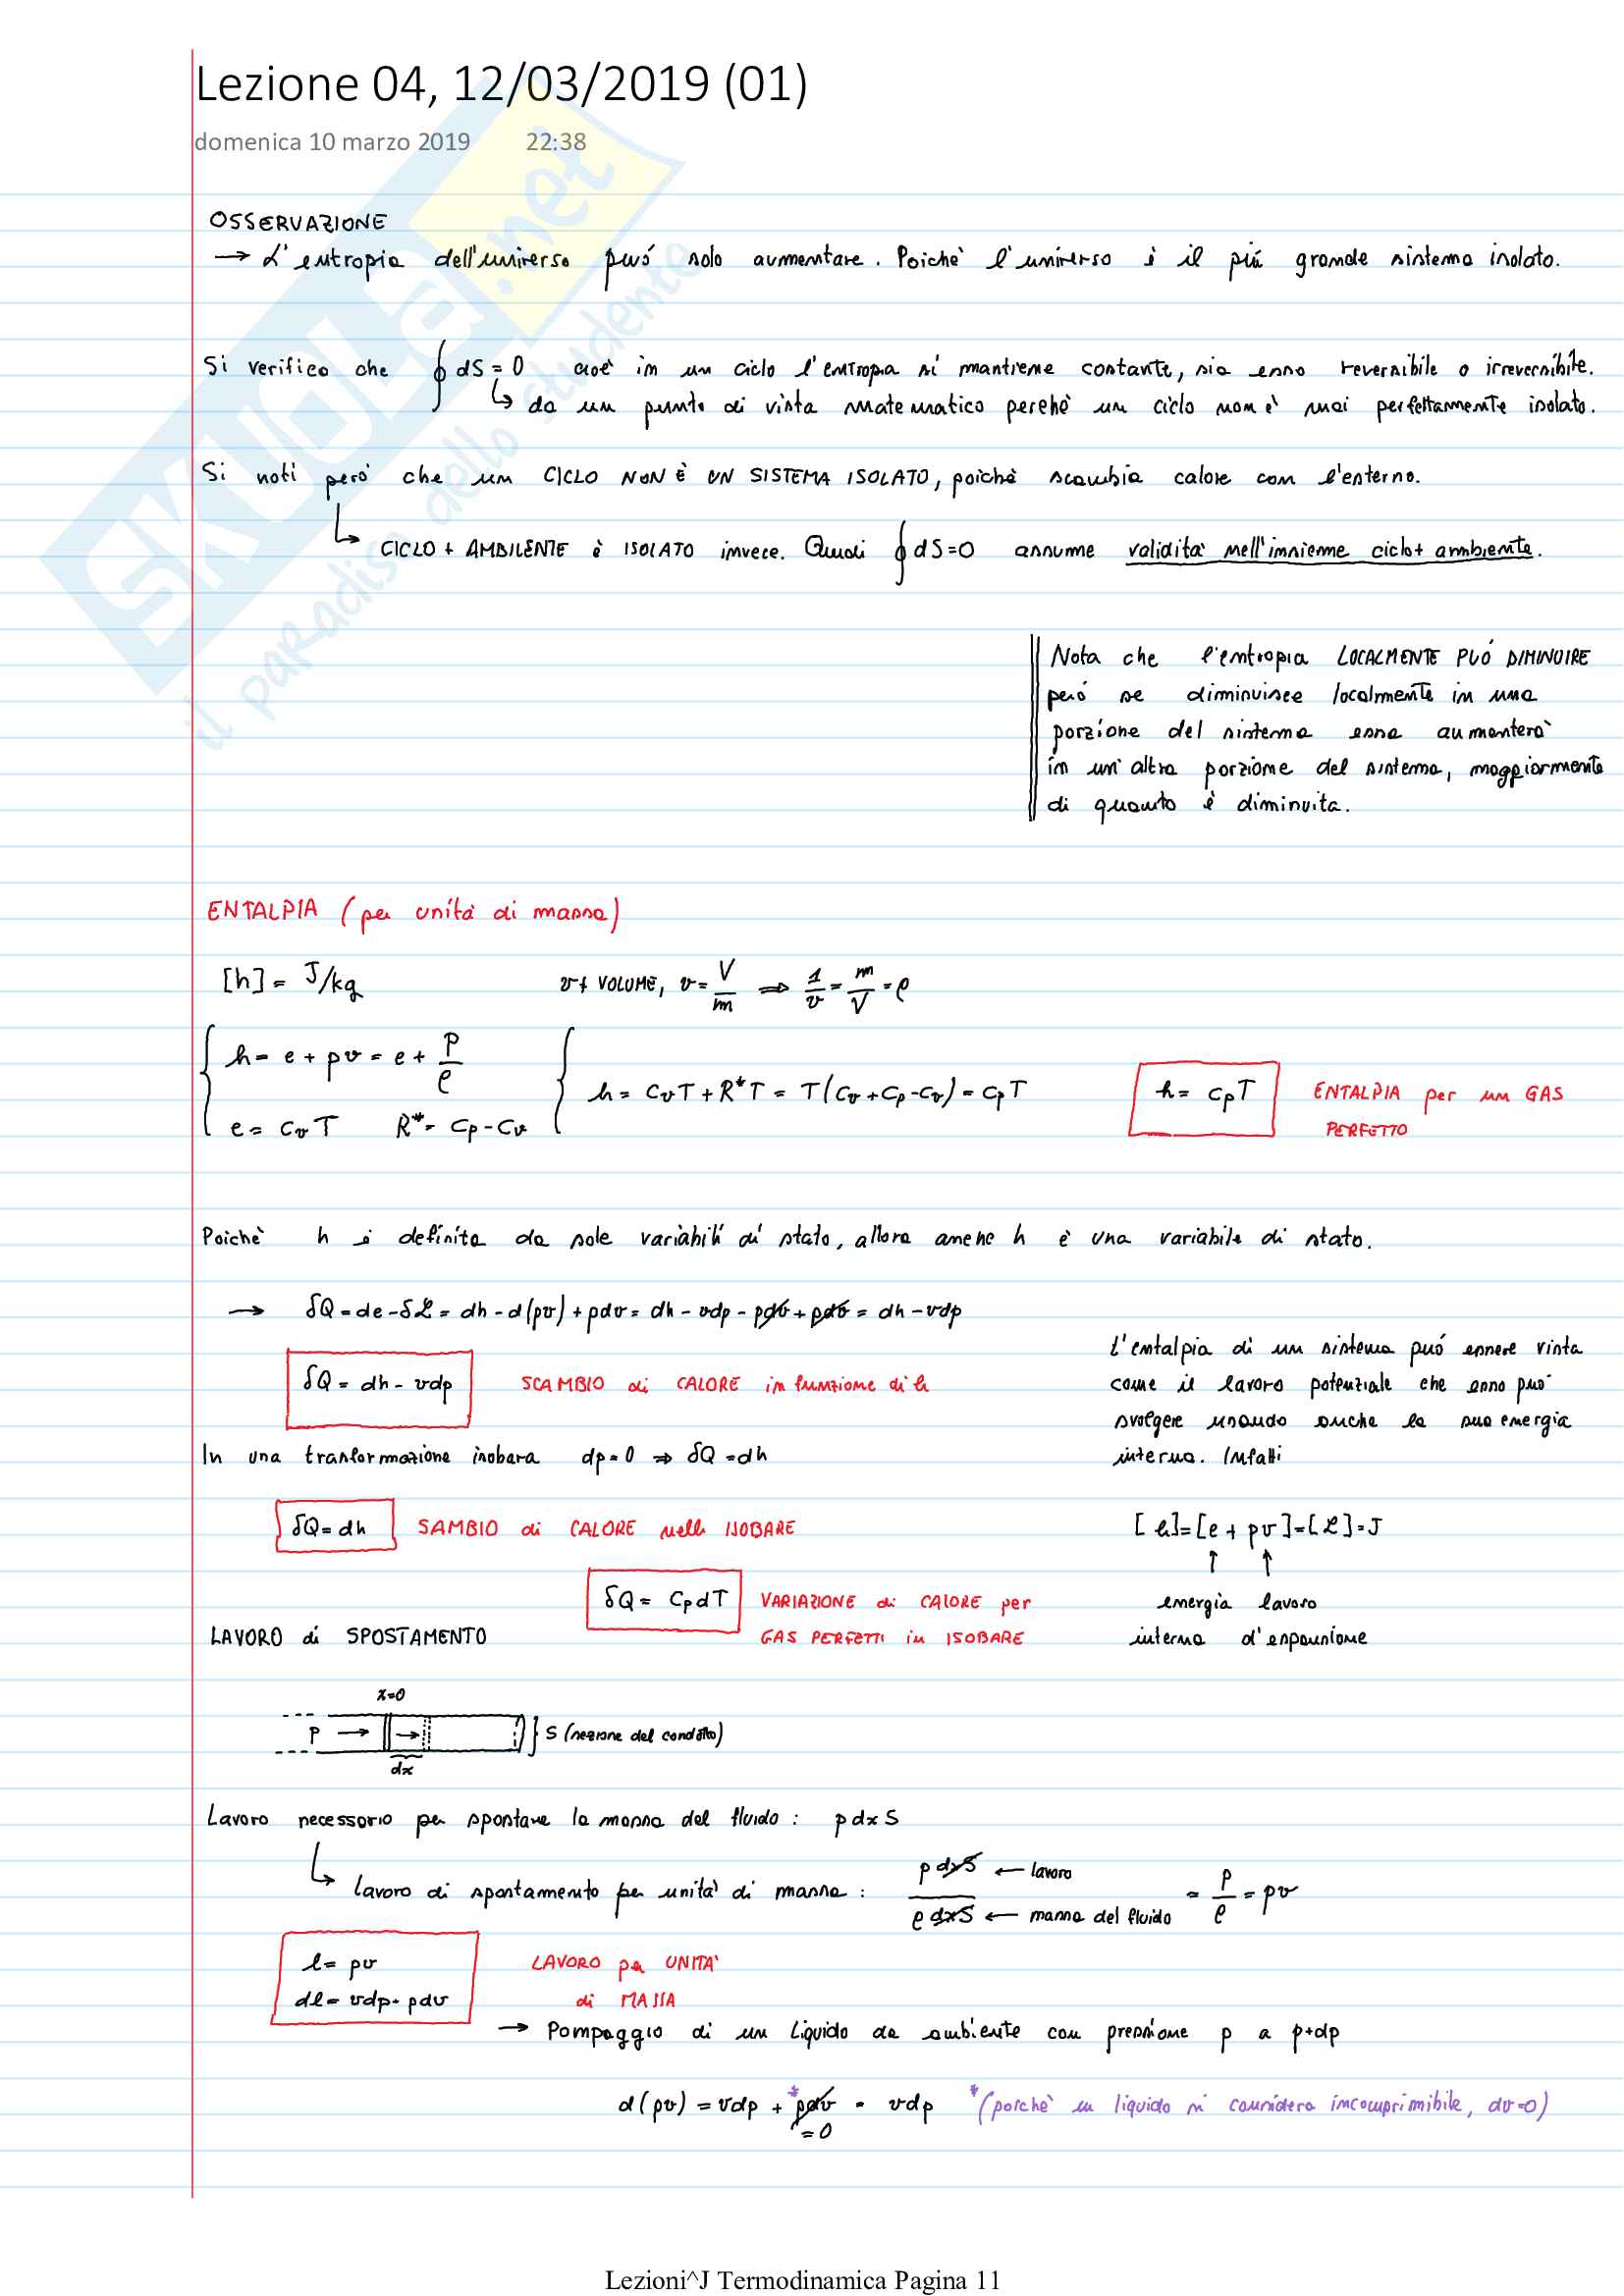 Lezione 04, 12/03/2019 (01)
domenica 10 marzo 2019 22:38
SKUOLa.net
il paradiso dello studente
OSSERVAZIONE
→ L'entropia dell'universo può solo aumentare. Poichè l'universo è il più grande sistema isolato.
Si verifica che ∮ dS = 0 cioè in un ciclo l'entropia si mantiene costante, sia esso reversibile o irreversibile.
↳ da un punto di vista matematico perchè un ciclo non è mai perfettamente isolato.
Si noti però che un CICLO NON È UN SISTEMA ISOLATO, poichè scambia calore con l'esterno.
↳ CICLO + AMBILENTE è ISOLATO invece. Quindi ∮ dS=0 assume validità nell'insieme ciclo+ ambiente.
Nota che l'entropia LOCALMENTE PUÓ DIMINUIRE
però se diminuisce localmente in una
porzione del sistema essa aumenterà
in un'altra porzione del sistema, maggiormente
di quanto è diminuita.
ENTALPIA (per unità di massa)
[h] = J/kg v≠ VOLUME, v = V/m ⇒ 1/v = m/V = ρ
h = e + pv = e + P/ρ
e = cvT R* = cp - cv
h = cvT + R*T = T(cv + cp - cv) = cpT
h = cpT ENTALPIA per un GAS
PERFETTO
Poichè h è definita da sole variàbili di stato, allora anche h è una variabile di stato.
→ δQ = de - δL = dh - d(pv) + pdv = dh - vdp - pdv + pdv = dh - vdp
δQ = dh - vdp SCAMBIO di CALORE in funzione di h
In una trasformazione isobara dp = 0 ⇒ δQ = dh
L'entalpia di un sistema può essere vista
come il lavoro potenziale che esso può
svolgere usando anche la sua energia
interna. Infatti
δQ = dh SAMBIO di CALORE nelle ISOBARE
[h] = [e + pv] = [L] = J
↑ ↑
energia lavoro
interna d'espansione
δQ = CpdT VARIAZIONE di CALORE per
GAS PERFETTI in ISOBARE
LAVORO di SPOSTAMENTO
x=0
P → → S (sezione del condotto)
dx
Lavoro necessario per spostare la massa del fluido : p dx S
↳ lavoro di spostamento per unità di massa : p dxS ← lavoro
ρ dxS ← massa del fluido = P/ρ = pv
l = pv LAVORO per UNITA'
dl = vdp + pdv di MASSA
→ Pompaggio di un liquido da ambiente con pressione p a p+dp
d(pv) = vdp + *pdv = vdp *(poichè un liquido si considera incomprimibile, dv=0)
=0
Lezioni^J Termodinamica Pagina 11